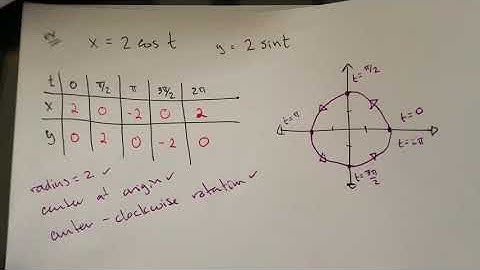 ex x = 2 cos t y = 2 sin t
t 0 π/2 π 3π/2 2π
x 2 0 -2 0 2
y 0 2 0 -2 0
radius = 2 ✓
center at origin ✓
counter-clockwise rotation ✓
t = π/2
t = π
t = 0
t = 2π
t = 3π/2